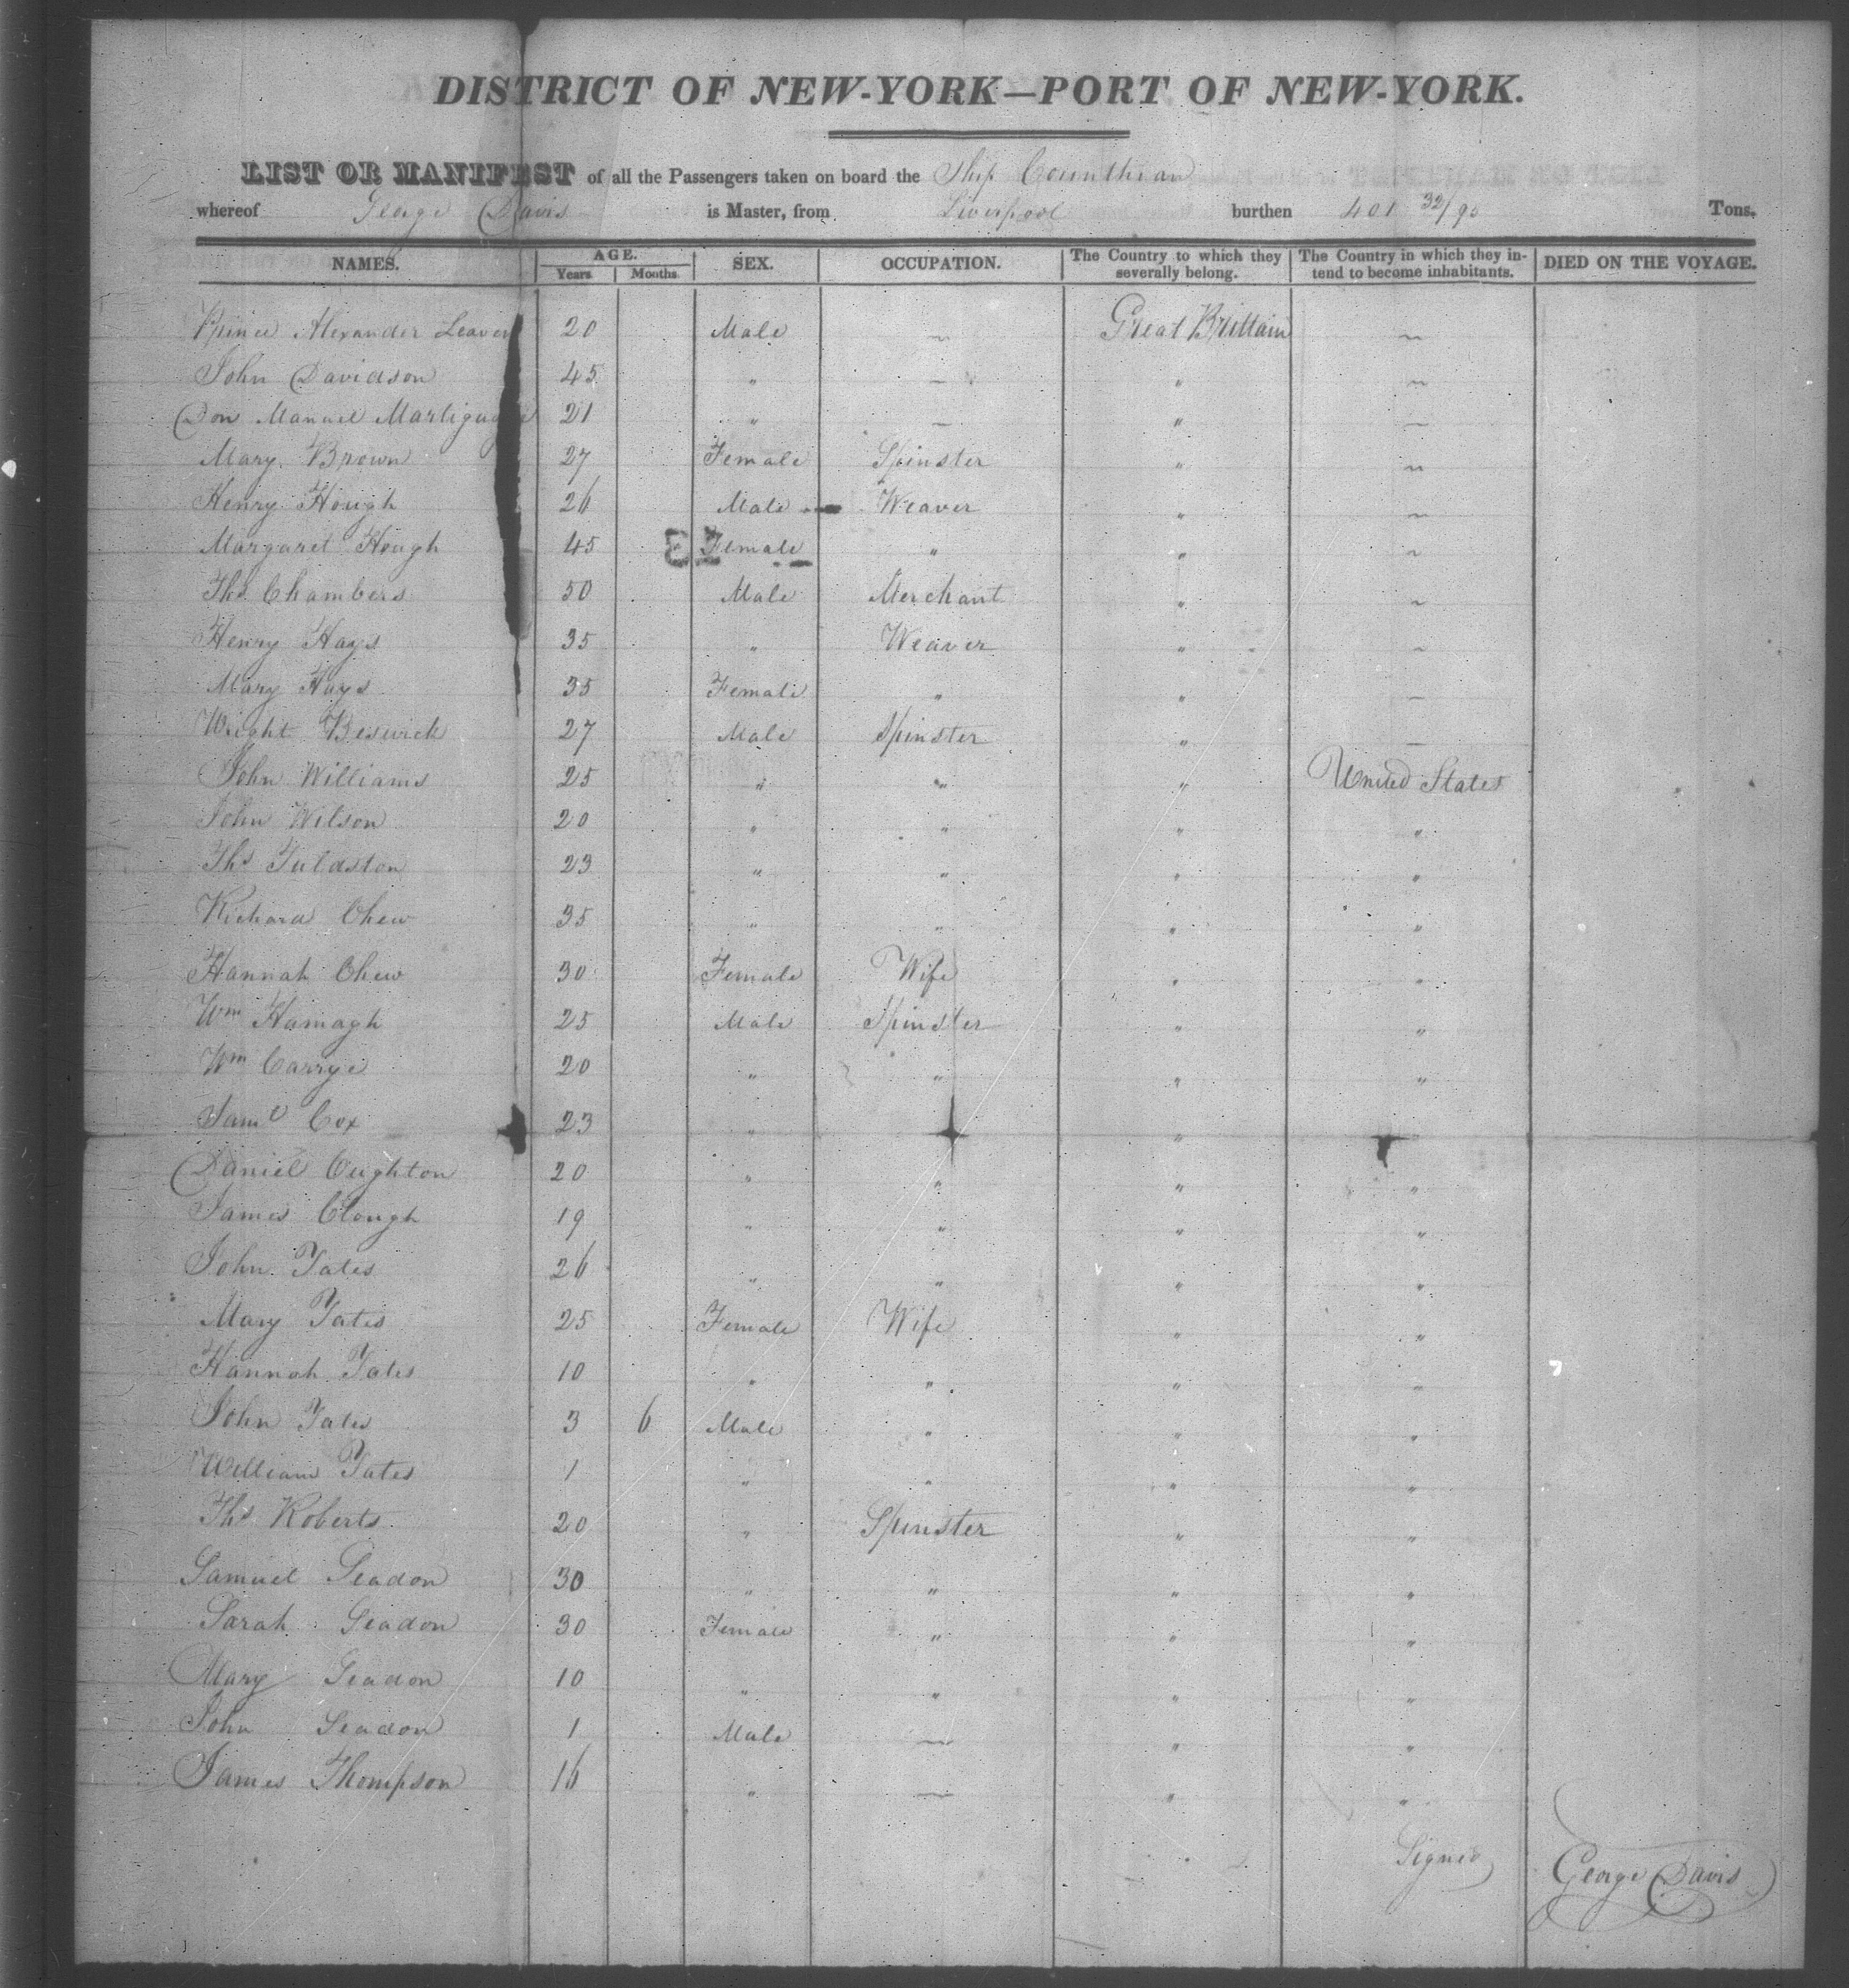 DISTRICT OF NEW-YORK—PORT OF NEW-YORK.
LIST OR MANIFEST of all the Passengers taken on board the Ship Corinthian
whereof George Davis is Master, from Liverpool burthen 401 32/90 Tons.
NAMES. AGE. Years Months SEX. OCCUPATION. The Country to which they severally belong. The Country in which they intend to become inhabitants. DIED ON THE VOYAGE.
Prince Alexander 20 Male ~ Great Brittain ~
John Davidson 45 " ~ " ~
Don Manuel 21 " ~ " ~
Mary Brown 27 Female Spinster " ~
Henry Hough 26 Male Weaver " ~
Margaret Hough 45 Female " " ~
Ths Chambers 50 Male Merchant " ~
Henry Hays 35 " Weaver " ~
Mary Hays 35 Female " " ~
Wright Beswick 27 Male Spinster " ~
John Williams 25 " " " United States
John Wilson 20 " " " "
Ths 23 " " " "
Richard Chew 35 " " " "
Hannah Chew 30 Female Wife " "
Wm Hamagh 25 Male Spinster " "
Wm Carrye 20 " " " "
Saml Cox 23 " " "
Daniel 20 " " " "
James Clough 19 " " " "
John Yates 26 " " " "
Mary Yates 25 Female Wife " "
Hannah Yates 10 " " " "
John Yates 3 6 Male " " "
William Yates 1 " " " "
Ths Roberts 20 " Spinster " "
Samuel Seadon 30 " " " "
Sarah Seadon 30 Female " " "
Mary Seadon 10 " " " "
John Seadon 1 Male ~ " "
James Thompson 16 " ~ " "
Signed George Davis